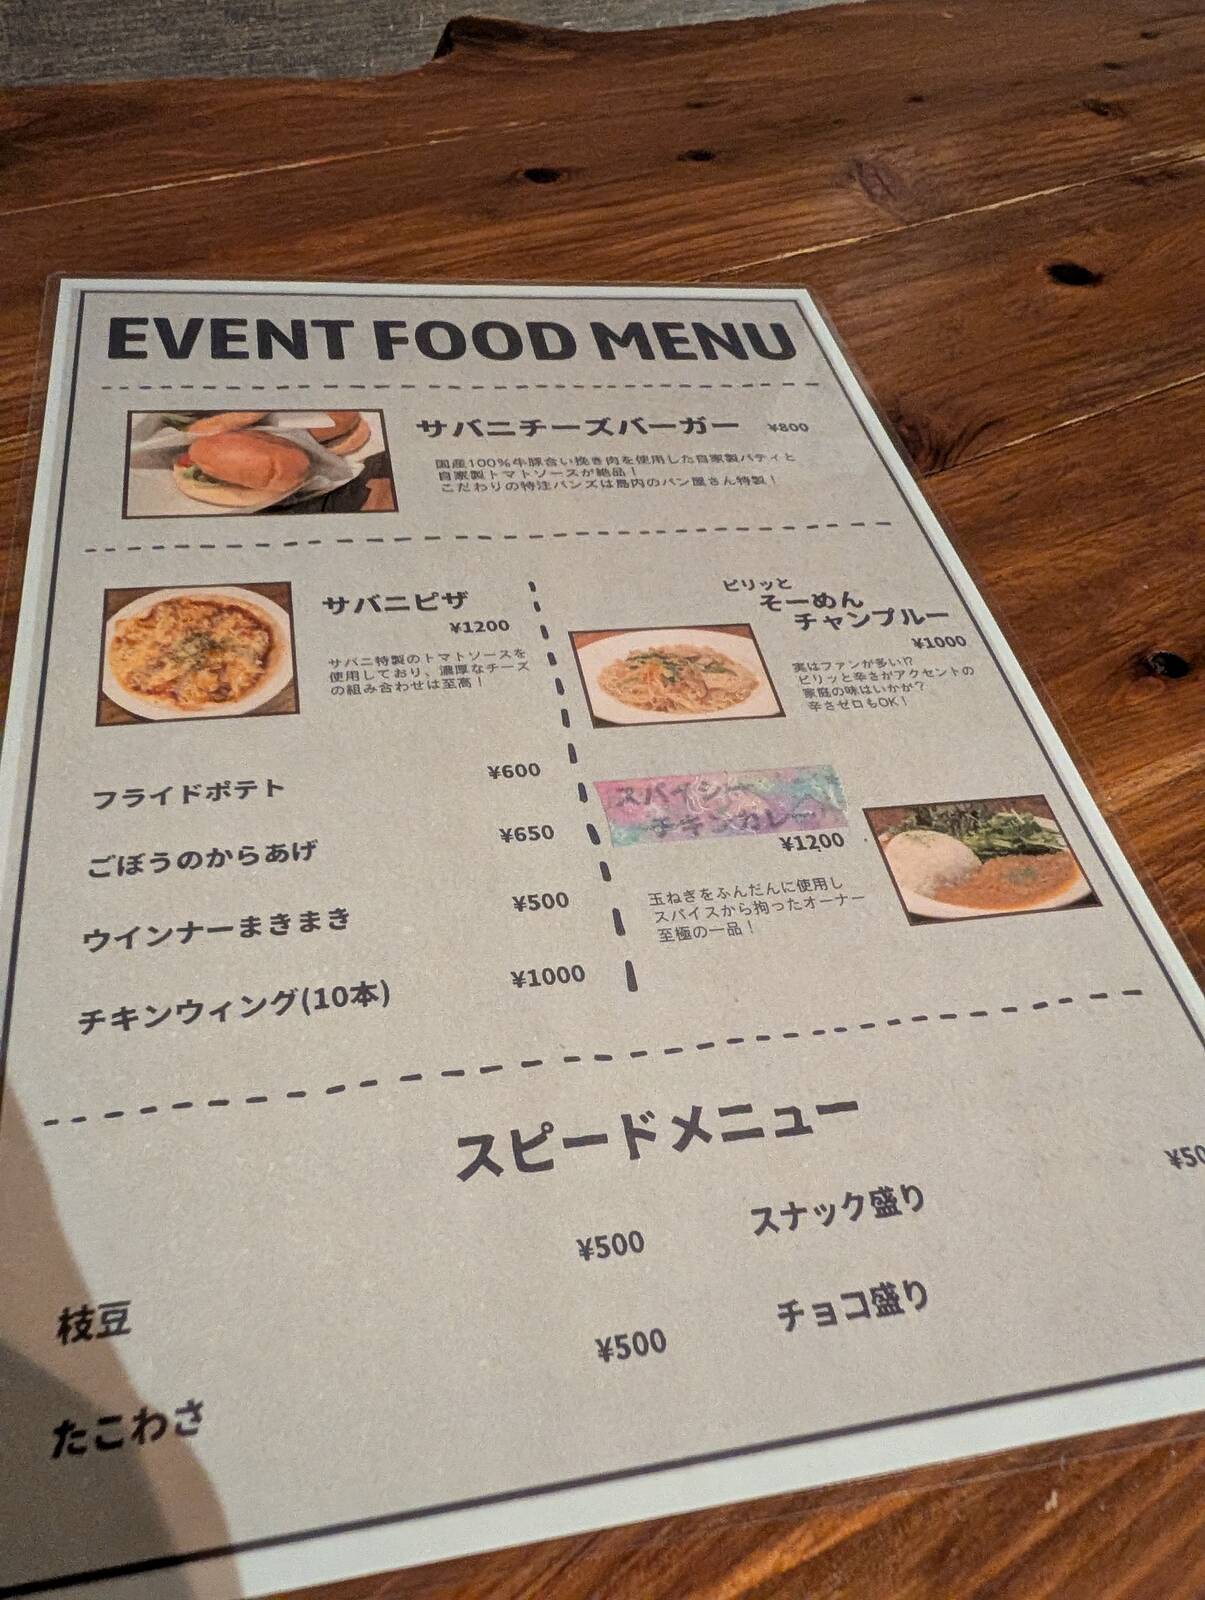 EVENT FOOD MENU
サバニチーズバーガー ¥800
国産100%牛豚合い挽き肉を使用した自家製パティと
自家製トマトソースが絶品！
こだわりの特注バンズは島内のパン屋さん特製！
サバニピザ
¥1200
サバニ特製のトマトソースを
使用しており、濃厚なチーズ
の組み合わせは至高！
ピリッと
そーめん
チャンプルー
¥1000
実はファンが多い!?
ピリッと辛さがアクセントの
家庭の味はいかが？
辛さゼロもOK！
フライドポテト ¥600
ごぼうのからあげ ¥650
ウインナーまきまき ¥500
チキンウィング(10本) ¥1000
スパイシー
チキンカレー
¥1200
玉ねぎをふんだんに使用し
スパイスから拘ったオーナー
至極の一品！
スピードメニュー
枝豆 ¥500
たこわさ ¥500
スナック盛り
チョコ盛り